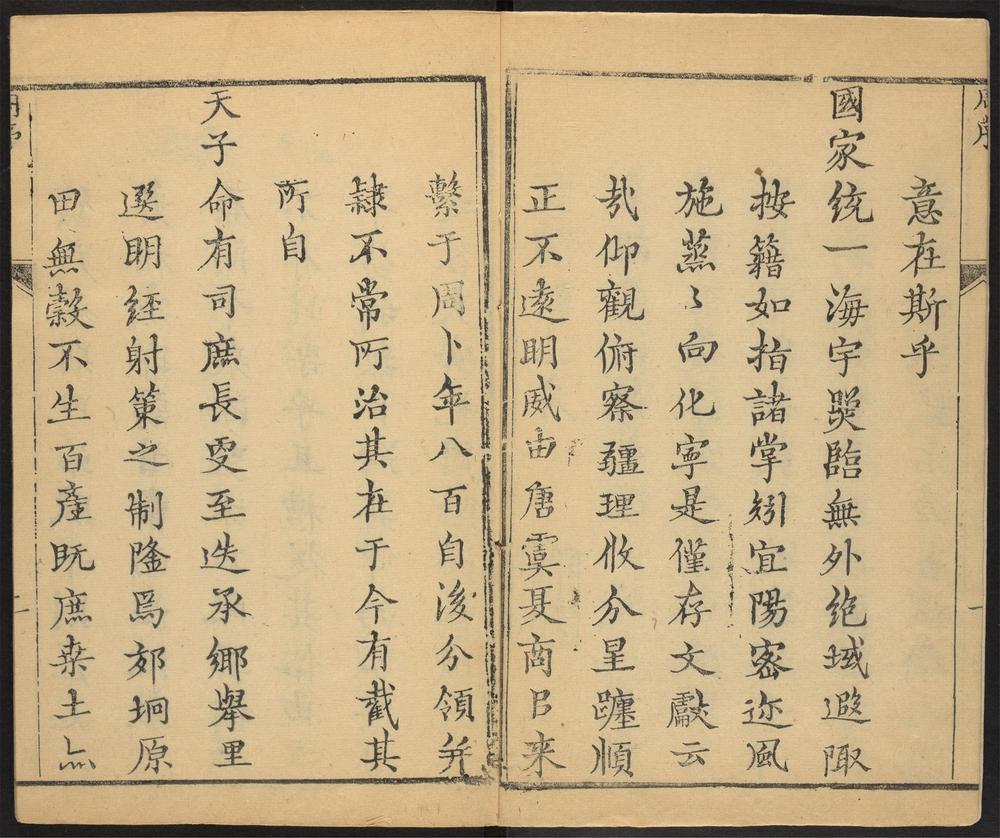 意在斯乎
國家統一海宇㷼臨無外絕域遐陬
按籍如指諸掌矧宜陽密迩風
施蒸〻向化寧是僅存文獻云
㢤仰觀俯察疆理攸分星躔順
正不遠明威由唐虞夏商㠯来
繫于周卜年八百自後分領并
隸不常所治其在于今有截其
所自
天子命有司庶長受至迭承鄉舉里
選明經射策之制隆焉郊坰原
田無穀不生百產旣庶桒土亾